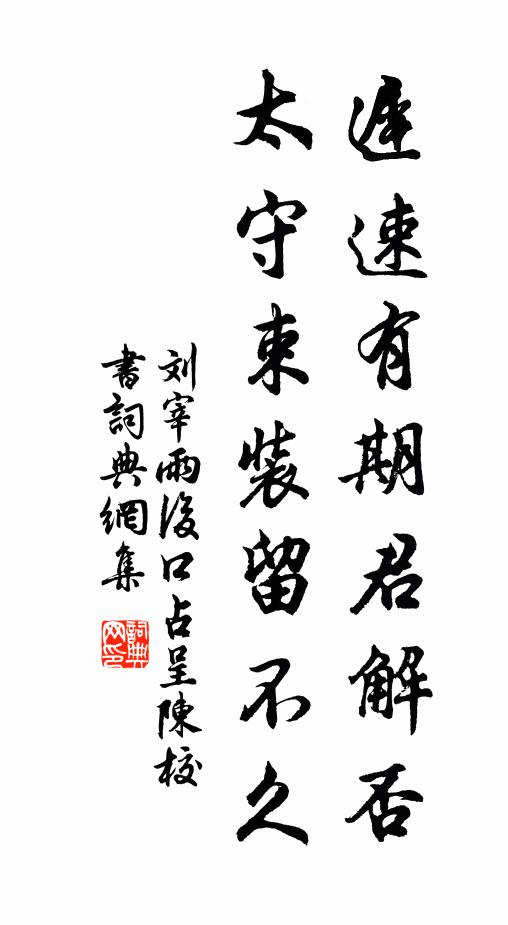 遲速有期君解否
太守束裝留不久
刘宰雨後口占呈陳校
書詞典網集
詞典
网印